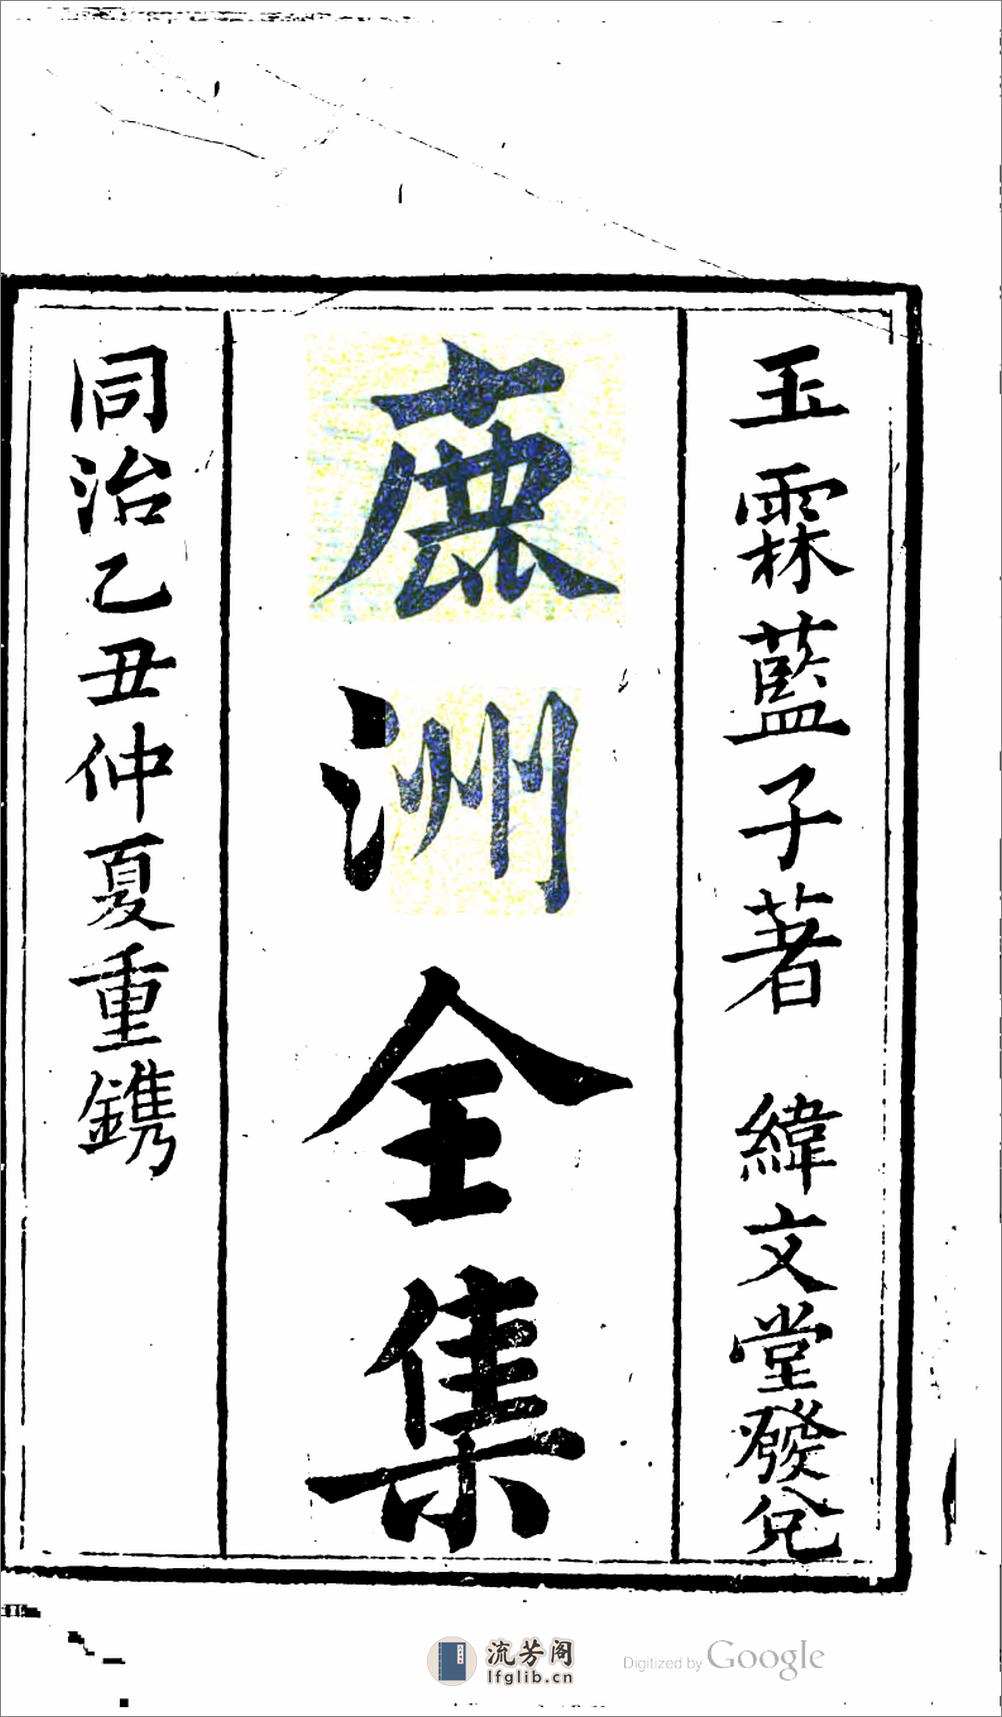 玉霖藍子著 緯文堂發兌
鹿洲全集
同治乙丑仲夏重鐫
流芳阁
lfglib.cn
Digitized by Google